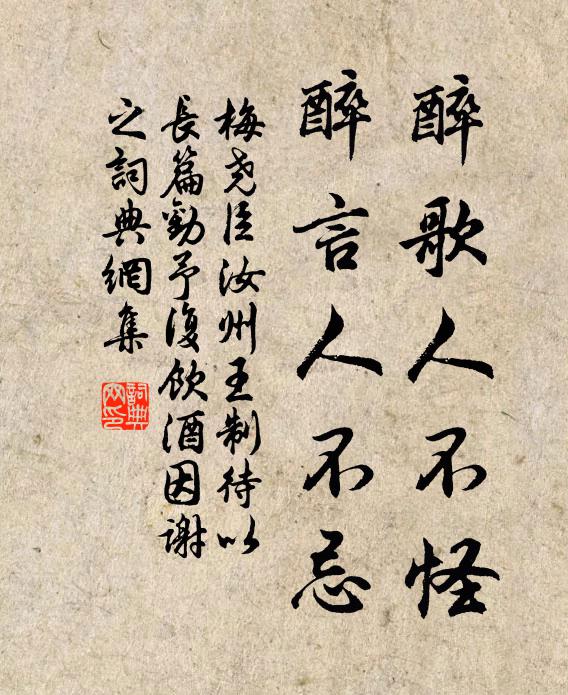 醉歌人不怪
醉言人不忌
梅尧臣汝州王制待以
長篇勸予復飲酒因谢
之詞典網集
詞典
网印